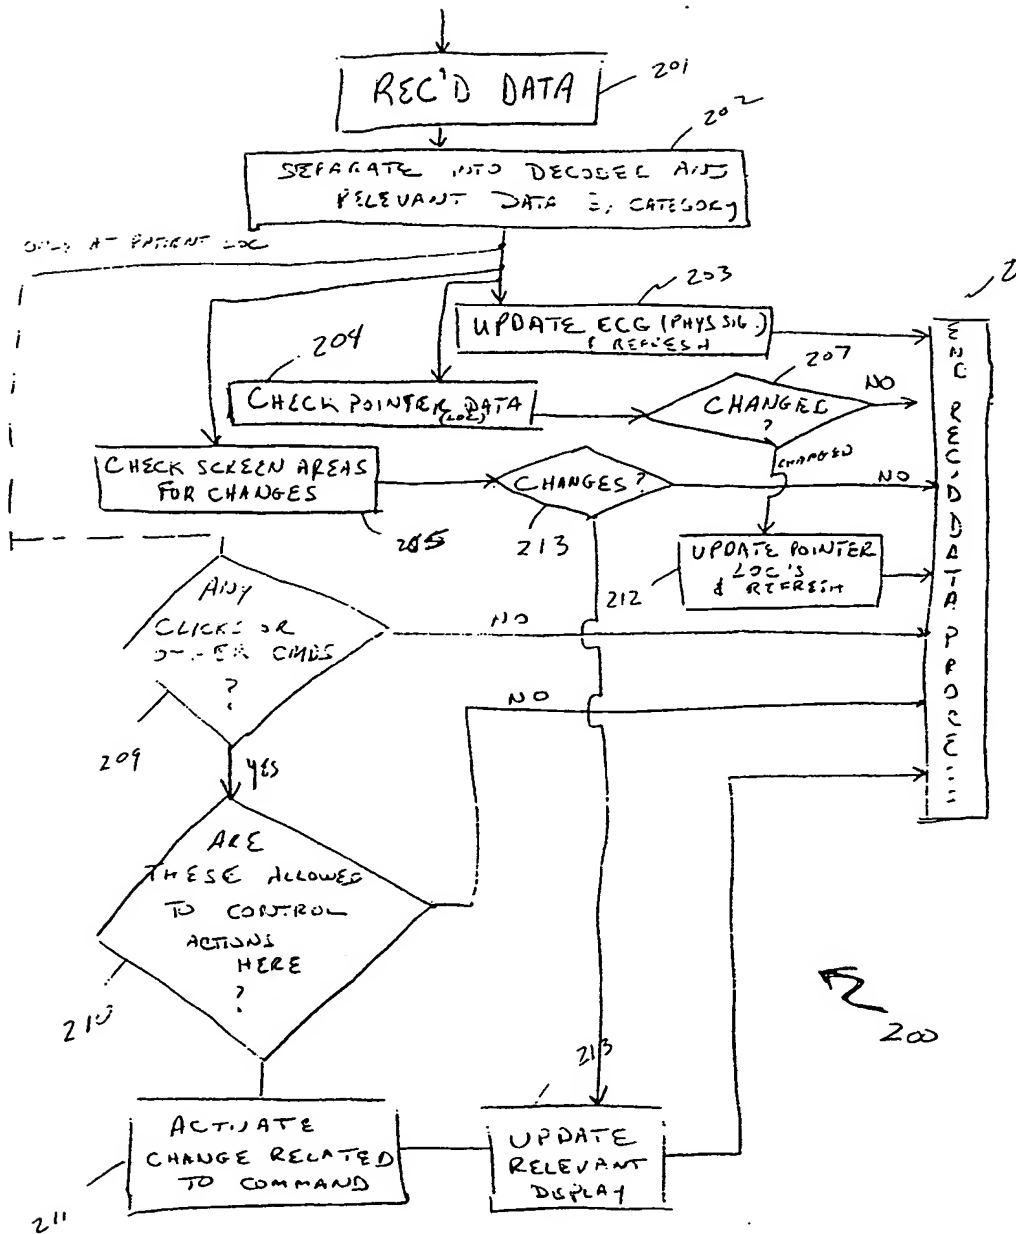 REC'D DATA
201
202
SEPARATE INTO DECODED AND
RELEVANT DATA CATEGORY
ONLY AT PATIENT LOC
203
UPDATE ECG (PHYS SIG.)
& REFRESH
204
CHECK POINTER DATA
(LOC)
207
CHANGED
?
NO
CHANGED
CHECK SCREEN AREAS
FOR CHANGES
205
CHANGES?
213
NO
UPDATE POINTER
LOC'S
& REFRESH
212
ANY
CLICKS OR
OTHER CMDS
?
NO
209
YES
NO
ARE
THESE ALLOWED
TO CONTROL
ACTIONS
HERE
?
210
200
ACTIVATE
CHANGE RELATED
TO COMMAND
211
213
UPDATE
RELEVANT
DISPLAY
2
END REC'D DATA